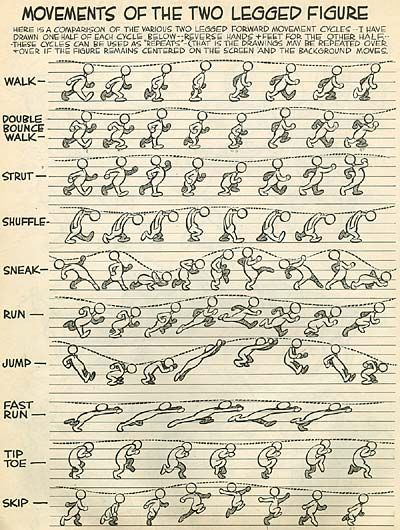 MOVEMENTS OF THE TWO LEGGED FIGURE
HERE IS A COMPARISON OF THE VARIOUS TWO LEGGED FORWARD MOVEMENT CYCLES - I HAVE
DRAWN ONE HALF OF EACH CYCLE BELOW - REVERSE HANDS + FEET FOR THE OTHER HALF -
- THESE CYCLES CAN BE USED AS "REPEATS" - (THAT IS THE DRAWINGS MAY BE REPEATED OVER
+ OVER IF THE FIGURE REMAINS CENTERED ON THE SCREEN AND THE BACKGROUND MOVES.
WALK -
DOUBLE
BOUNCE
WALK -
STRUT -
SHUFFLE -
SNEAK -
RUN -
JUMP -
FAST
RUN -
TIP
TOE -
SKIP -